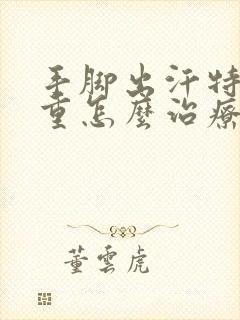 手脚出汗特
重怎麼治療
董雲虎